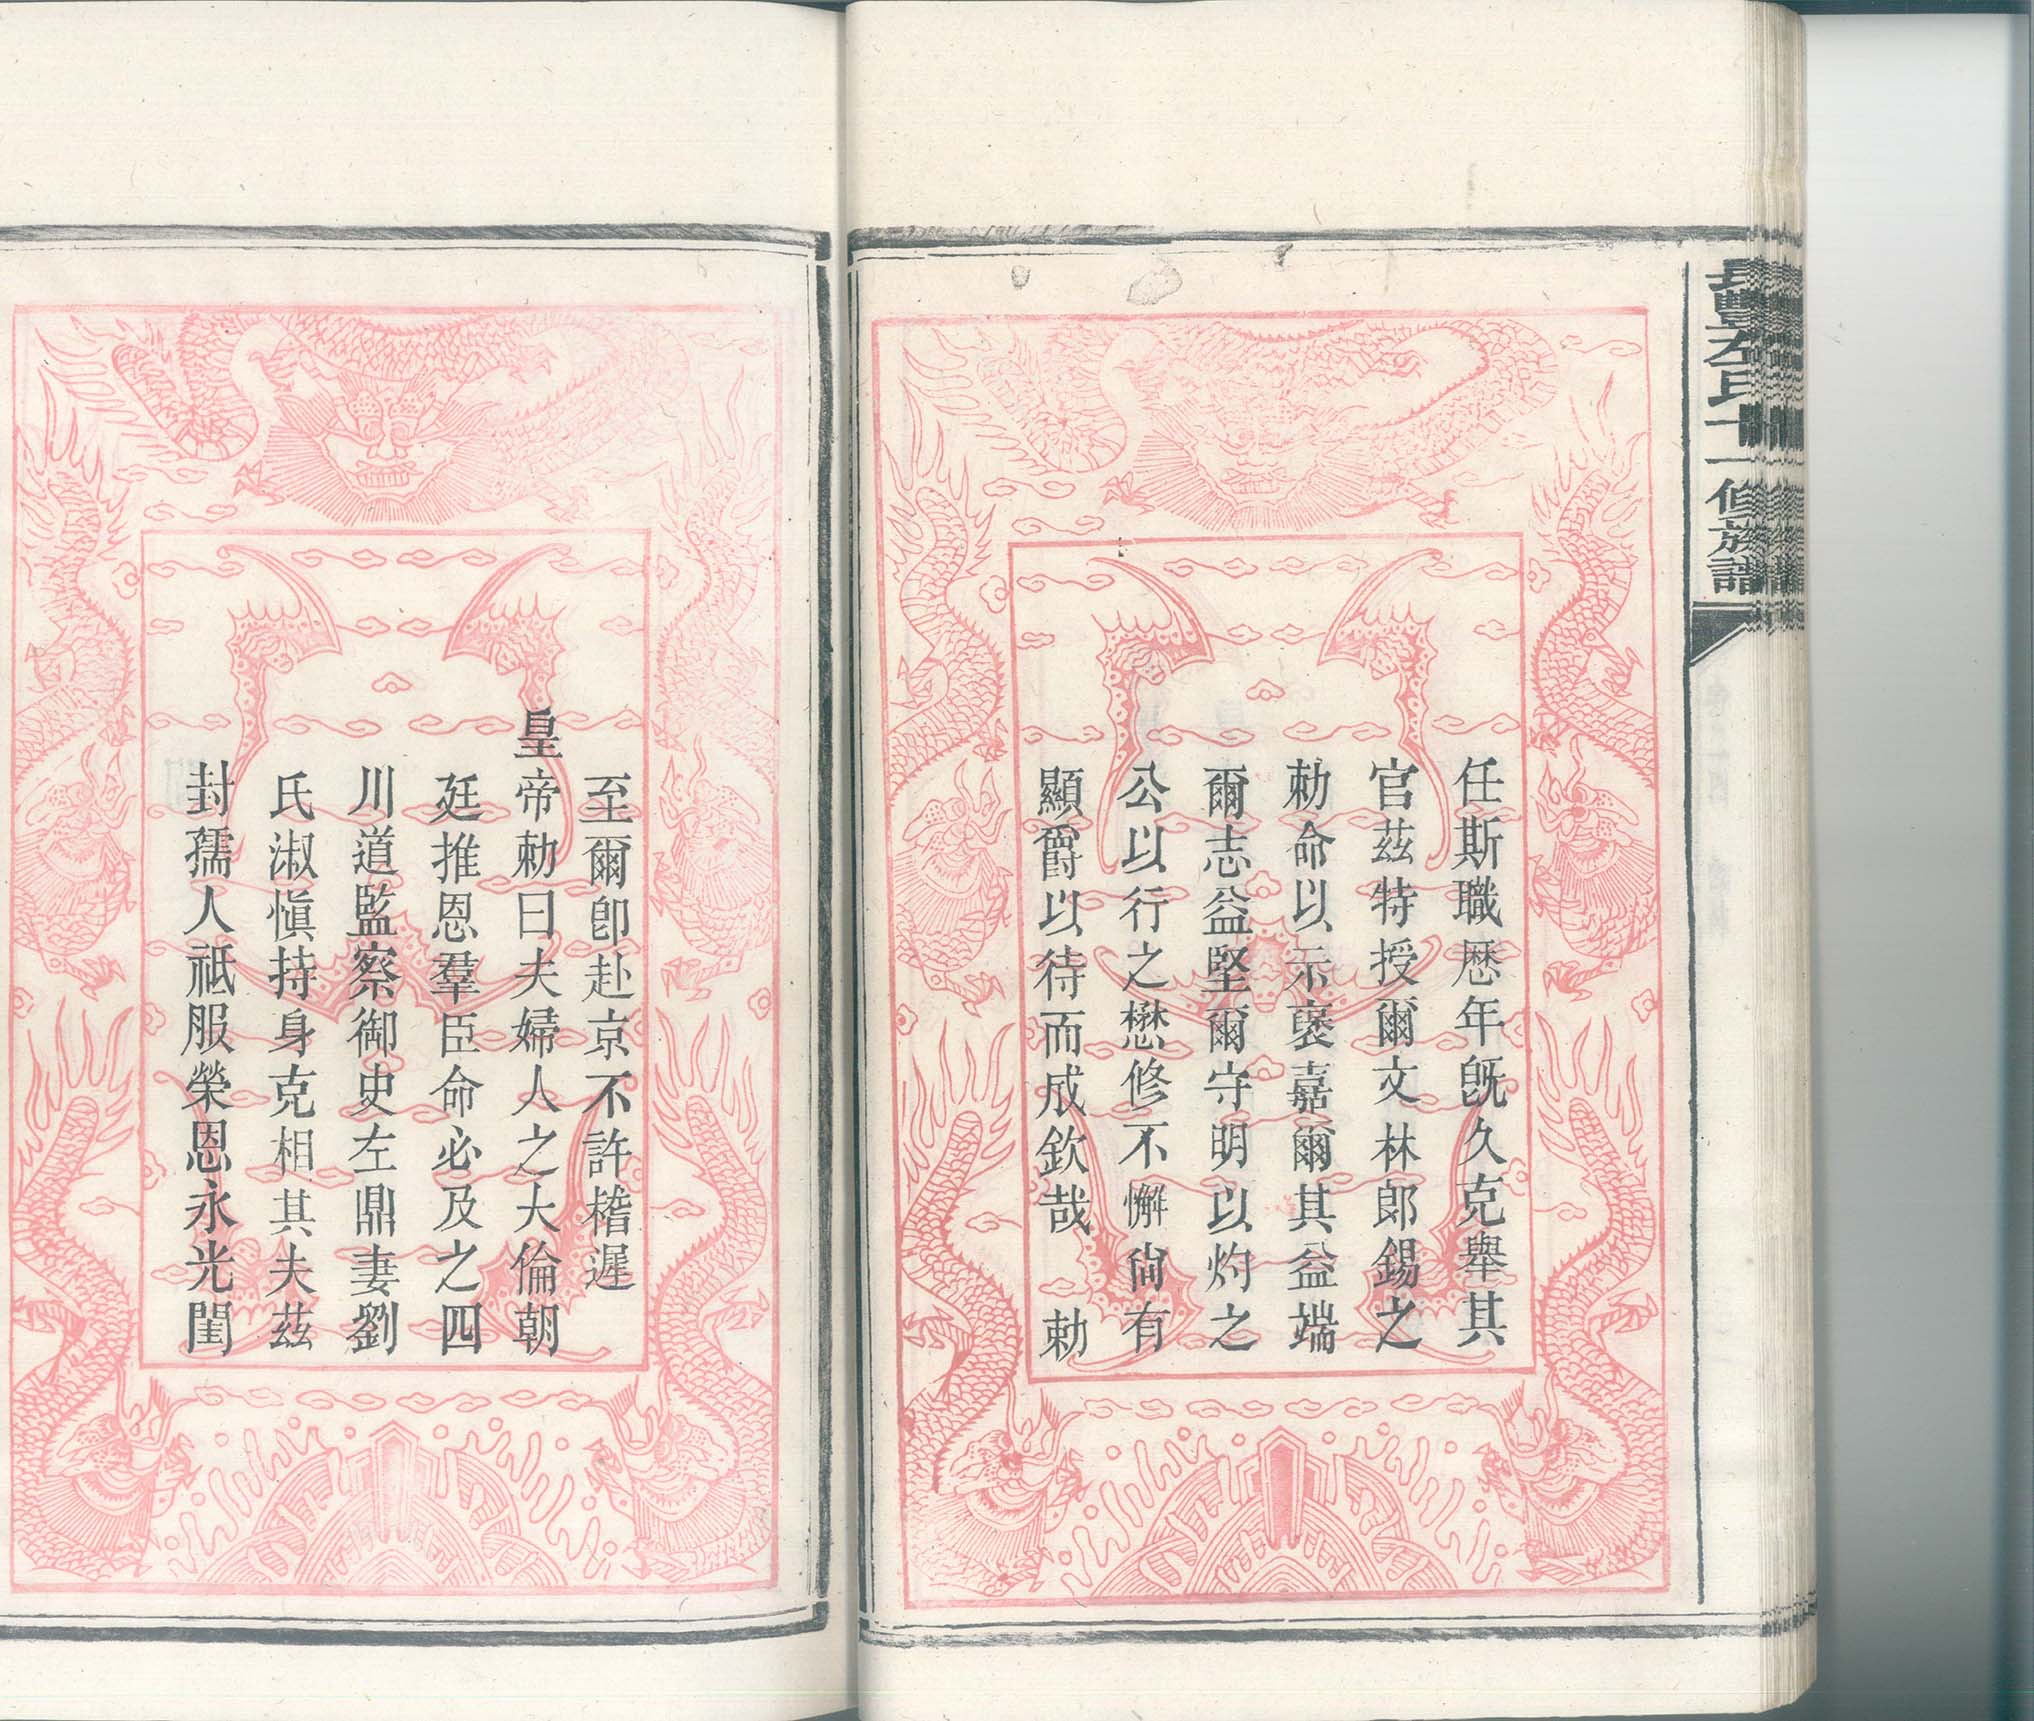 任斯職歷年旣久克舉其
官茲特授爾文林郎錫之
勅命以示褒嘉爾其益端
爾志益堅爾守明以灼之
公以行之懋修不懈尙有
顯爵以待而成欽哉　勅
至爾卽赴京不許稽遲
皇帝勅曰夫婦人之大倫朝
廷推恩羣臣命必及之四
川道監察御史左鼎妻劉
氏淑愼持身克相其夫茲
封孺人祗服榮恩永光閨
左氏十一修族譜